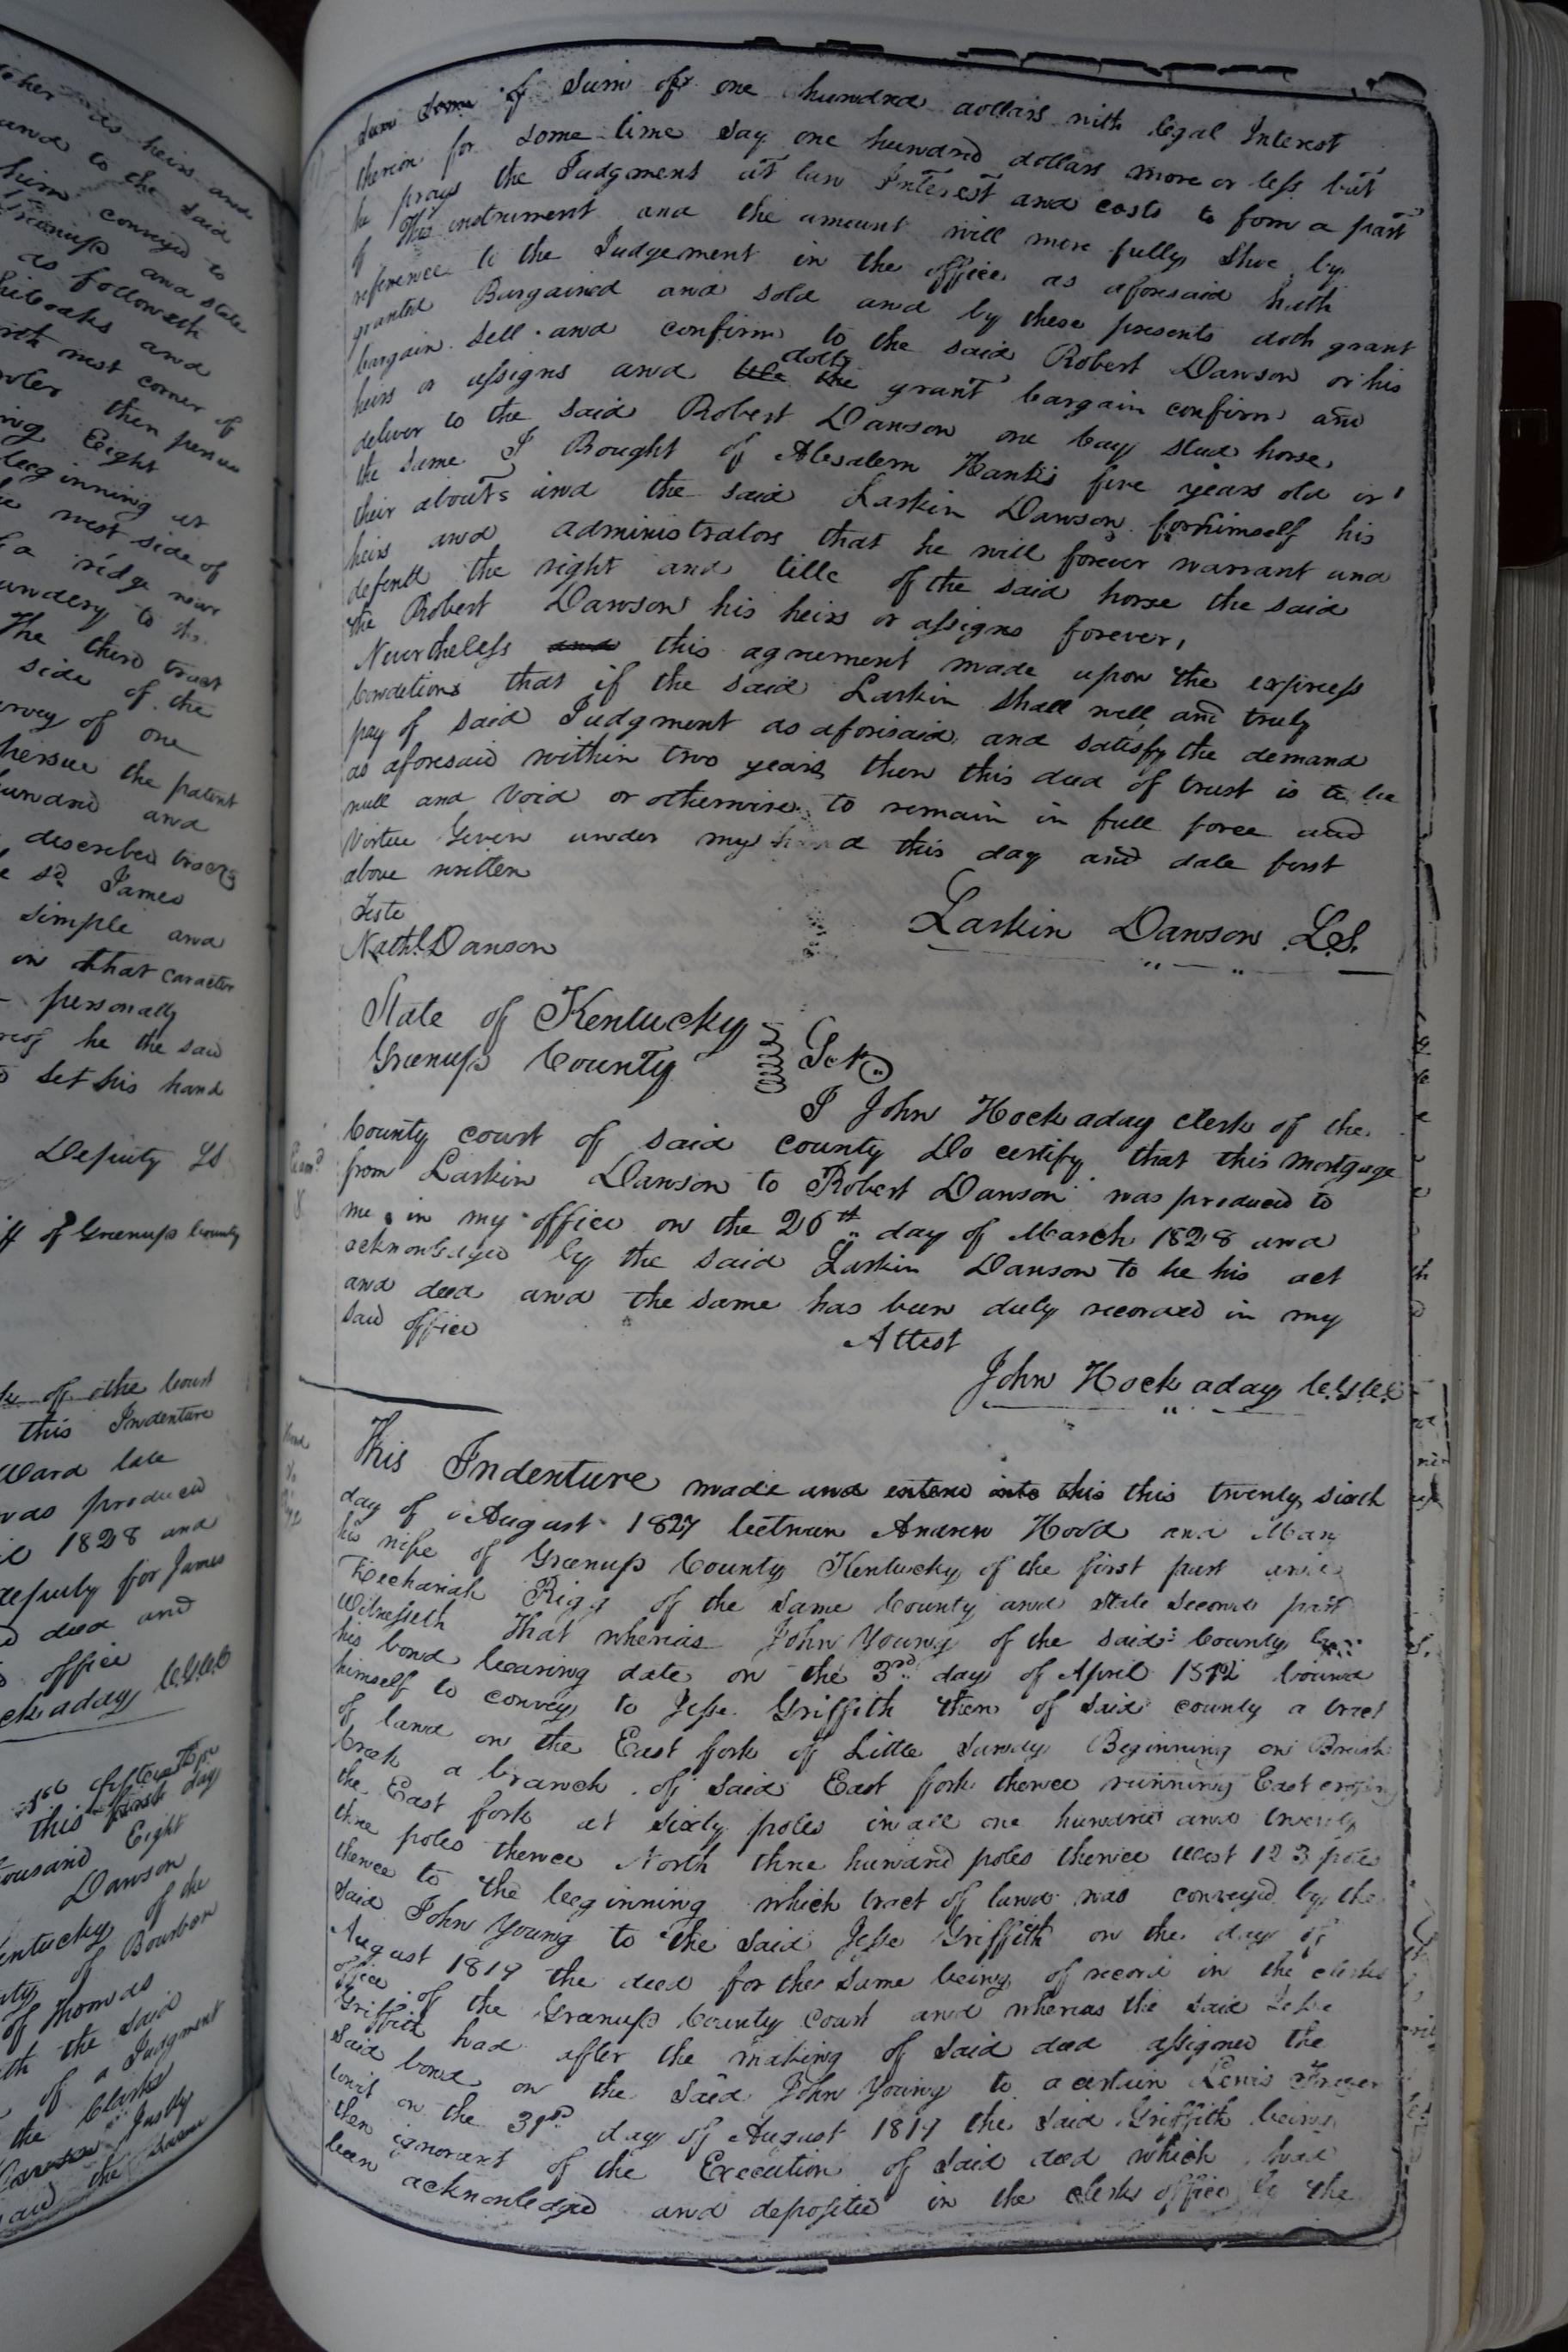 ther his heirs and
and to the said
him conveyed to
Greenup and state
as followeth
and
north west corner of
then
ing Eight
beginning at
the west side of
a ridge near
to the
The third tract
side of the
survey of one
the patent
hundred and
described tracts
sd. James
simple and
in that caracter
personally
he the said
set his hand
Deputy LS
of Greenup County
of the Court
this Indenture
Ward late
was produced
1828 and
deputy for James
deed and
office
ckaday C.G.C.C
this first day
thousand Eight
Dawson
Kentucky of the
of Bourbon
of Thomas
th the said
of a Judgment
the Clerks
Justly
and the same
Sum of one hundred dollars with legal Interest
thereon for some time say one hundred dollars more or less but
he prays the Judgment at law Interest and costs to form a part
of this instrument and the amount will more fully Shue by
reference to the Judgement in the office as aforesaid hath
granted Bargained and sold and by these presents doth grant
bargain sell and confirm to the said Robert Dawson or his
heirs or assigns and doth grant bargain confirm and
deliver to the said Robert Dawson one bay stud horse
the same I Bought of Abesalem Hanks five years old or
their abouts and the said Larkin Dawson for himself his
heirs and administrators that he will forever warrant and
defend the right and title of the said horse the said
the Robert Dawson his heirs or assigns forever,
Nevertheless and this agreement made upon the express
Conditions that if the said Larkin Shall well and truly
pay of said Judgment as aforesaid and satisfy the demand
as aforesaid within two years then this deed of trust is to be
null and void or otherwise to remain in full force and
Virtue Given under my hand this day and date first
above written
Teste
Nathl. Dawson
Larkin Dawson L.S.
State of Kentucky
Greenup County Sct.
I John Hockaday clerk of the
County court of said county Do certify that this mortgage
from Larkin Dawson to Robert Dawson was produced to
me in my office on the 26th day of March 1828 and
acknowledged by the said Larkin Dawson to be his act
and deed and the same has been duly recorded in my
said office
Attest
John Hockaday C.G.C.C
This Indenture made and entered into this this twenty sixth
day of August 1827 between Andrew Hood and Mary
his wife of Greenup County Kentucky of the first part and
Zechariah Rigg of the same County and state second part
Witnesseth That whereas John Young of the said County by
his bond bearing date on the 3rd day of April 1812 bound
himself to convey to Jesse Griffith then of said county a tract
of land on the East fork of Little Sandy Beginning on Brush
Creek a branch of said East fork thence running East crossing
the East fork at sixty poles in all one hundred and twenty
three poles thence North three hundred poles thence West 123 poles
thence to the beginning which tract of land was conveyed by the
said John Young to the said Jesse Griffith on the day of
August 1819 the deed for the same being of record in the clerks
office of the Greenup County Court and whereas the said Jesse
Griffith had after the making of said deed assigned the
said bond on the said John Young to a certain Lewis
on the 31st day of August 1819 the said Griffith being
then ignorant of the Execution of said deed which had
been acknowledged and deposited in the clerks office by the